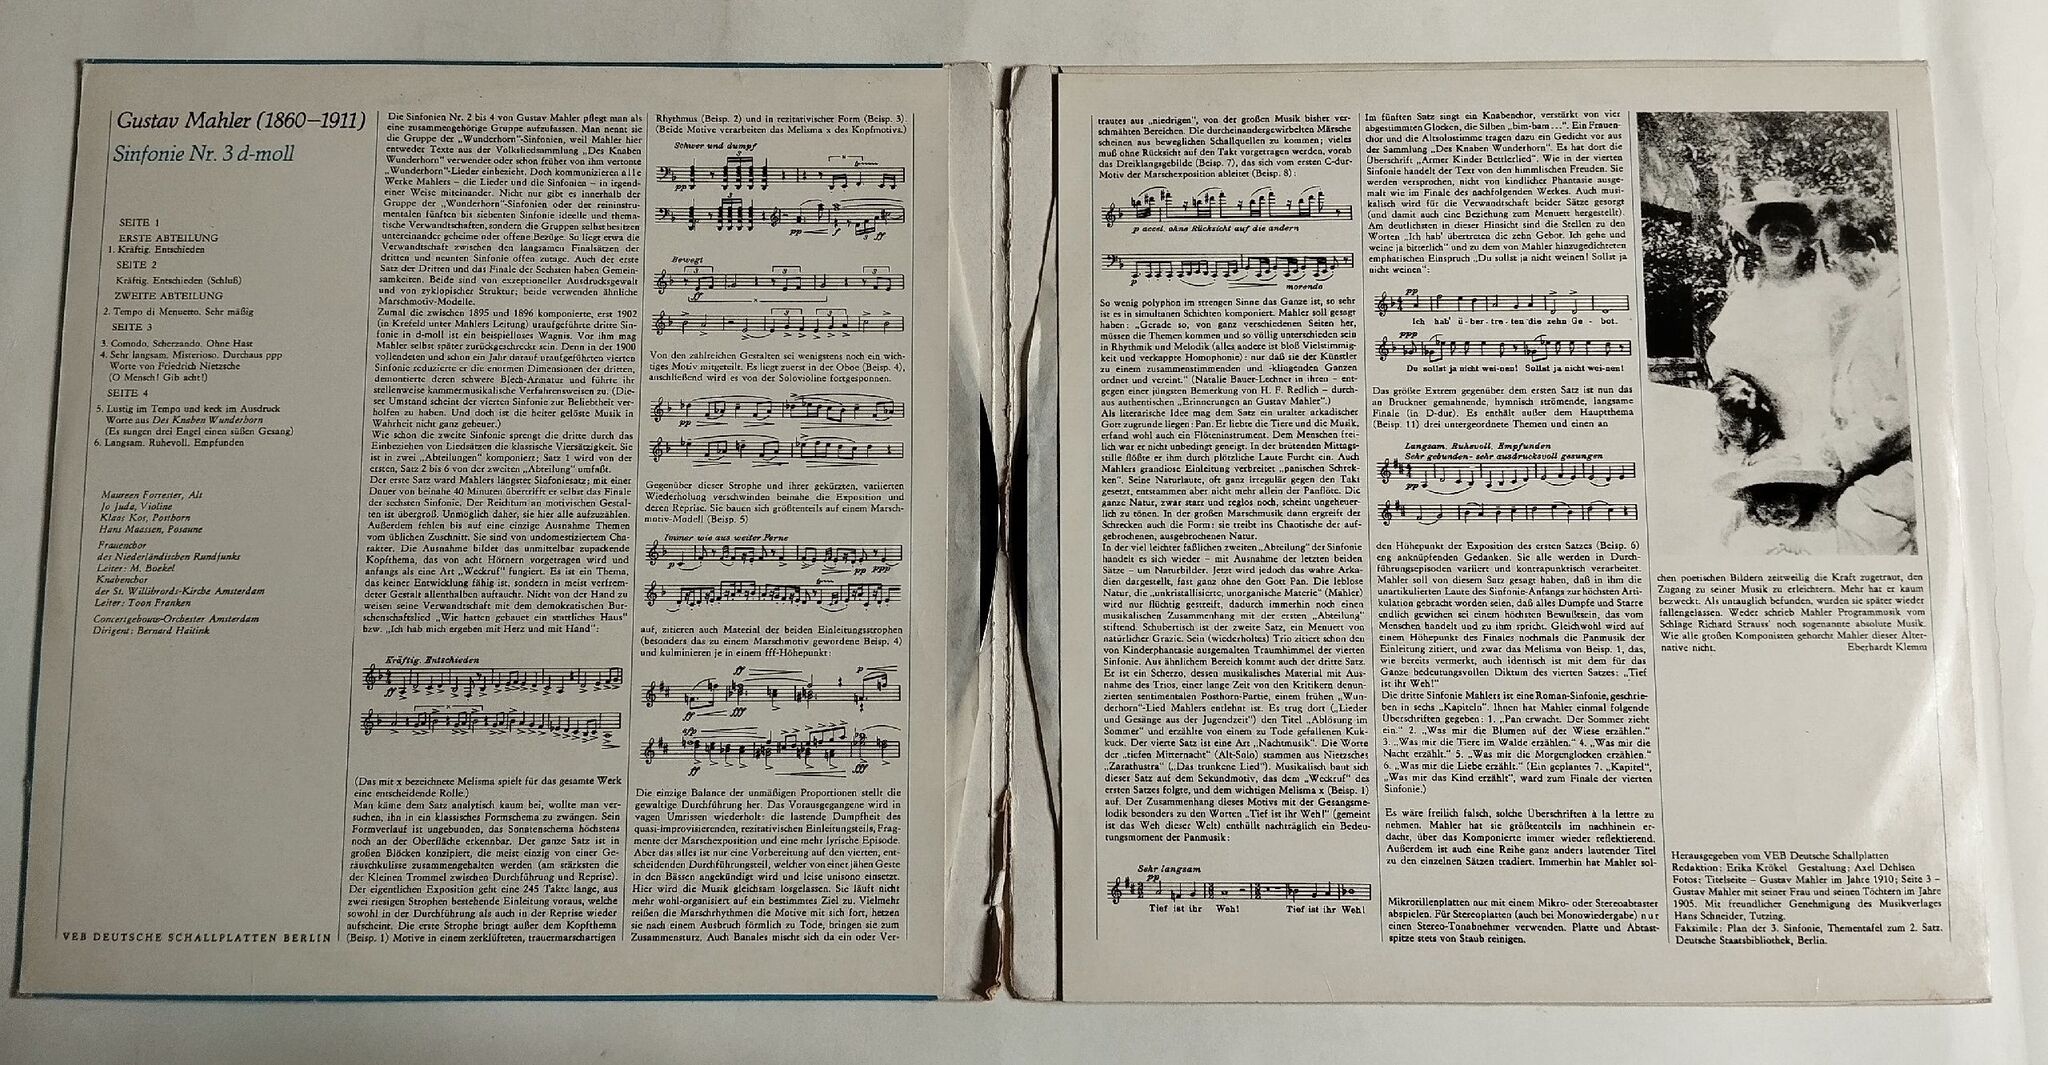 Gustav Mahler (1860–1911)
Sinfonie Nr. 3 d-moll
SEITE 1
ERSTE ABTEILUNG
1. Kräftig. Entschieden
SEITE 2
Kräftig. Entschieden (Schluß)
ZWEITE ABTEILUNG
2. Tempo di Menuetto. Sehr mäßig
SEITE 3
3. Comodo. Scherzando. Ohne Hast
4. Sehr langsam. Misterioso. Durchaus ppp
Worte von Friedrich Nietzsche
(O Mensch! Gib acht!)
SEITE 4
5. Lustig im Tempo und keck im Ausdruck
Worte aus Des Knaben Wunderhorn
(Es sungen drei Engel einen süßen Gesang)
6. Langsam. Ruhevoll. Empfunden
Maureen Forrester, Alt
Jo Juda, Violine
Klaas Kos, Posthorn
Hans Maassen, Posaune
Frauenchor
des Niederländischen Rundfunks
Leiter: M. Boekel
Knabenchor
der St. Willibrords-Kirche Amsterdam
Leiter: Toon Franken
Concertgebouw-Orchester Amsterdam
Dirigent: Bernard Haitink
VEB DEUTSCHE SCHALLPLATTEN BERLIN
Die Sinfonien Nr. 2 bis 4 von Gustav Mahler pflegt man als
eine zusammengehörige Gruppe aufzufassen. Man nennt sie
die Gruppe der „Wunderhorn“-Sinfonien, weil Mahler hier
entweder Texte aus der Volksliedsammlung „Des Knaben
Wunderhorn“ verwendet oder schon früher von ihm vertonte
„Wunderhorn“-Lieder einbezieht. Doch kommunizieren alle
Werke Mahlers – die Lieder und die Sinfonien – in irgend-
einer Weise miteinander. Nicht nur gibt es innerhalb der
Gruppe der „Wunderhorn“-Sinfonien oder der reininstru-
mentalen fünften bis siebenten Sinfonie ideelle und thema-
tische Verwandtschaften, sondern die Gruppen selbst besitzen
untereinander geheime oder offene Bezüge. So liegt etwa die
Verwandtschaft zwischen den langsamen Finalsätzen der
dritten und neunten Sinfonie offen zutage. Auch der erste
Satz der Dritten und das Finale der Sechsten haben Gemein-
samkeiten. Beide sind von exzeptioneller Ausdrucksgewalt
und von zyklopischer Struktur; beide verwenden ähnliche
Marschmotiv-Modelle.
Zumal die zwischen 1895 und 1896 komponierte, erst 1902
(in Krefeld unter Mahlers Leitung) uraufgeführte dritte Sin-
fonie in d-moll ist ein beispielloses Wagnis. Vor ihm mag
Mahler selbst später zurückgeschreckt sein. Denn in der 1900
vollendeten und schon ein Jahr darauf uraufgeführten vierten
Sinfonie reduzierte er die enormen Dimensionen der dritten,
demontierte deren schwere Blech-Armatur und führte ihr
stellenweise kammermusikalische Verfahrensweisen zu. (Die-
ser Umstand scheint der vierten Sinfonie zur Beliebtheit ver-
holfen zu haben. Und doch ist die heiter gelöste Musik in
Wahrheit nicht ganz geheuer.)
Wie schon die zweite Sinfonie sprengt die dritte durch das
Einbeziehen von Liedsätzen die klassische Viersätzigkeit. Sie
ist in zwei „Abteilungen“ komponiert; Satz 1 wird von der
ersten, Satz 2 bis 6 von der zweiten „Abteilung“ umfaßt.
Der erste Satz ward Mahlers längster Sinfoniesatz; mit einer
Dauer von beinahe 40 Minuten übertrifft er selbst das Finale
der sechsten Sinfonie. Der Reichtum an motivischen Gestal-
ten ist übergroß. Unmöglich daher, sie hier alle aufzuzählen.
Außerdem fehlen bis auf eine einzige Ausnahme Themen
vom üblichen Zuschnitt. Sie sind von undomestiziertem Cha-
rakter. Die Ausnahme bildet das unmittelbar zupackende
Kopfthema, das von acht Hörnern vorgetragen wird und
anfangs als eine Art „Weckruf“ fungiert. Es ist ein Thema,
das keiner Entwicklung fähig ist, sondern in meist verfrem-
deter Gestalt allenthalben auftaucht. Nicht von der Hand zu
weisen seine Verwandtschaft mit dem demokratischen Bur-
schenschaftslied „Wir hatten gebauet ein stattliches Haus“
bzw. „Ich hab mich ergeben mit Herz und mit Hand“:
Kräftig. Entschieden
ff
x
(Das mit x bezeichnete Melisma spielt für das gesamte Werk
eine entscheidende Rolle.)
Man käme dem Satz analytisch kaum bei, wollte man ver-
suchen, ihn in ein klassisches Formschema zu zwängen. Sein
Formverlauf ist ungebunden, das Sonatenschema höchstens
noch an der Oberfläche erkennbar. Der ganze Satz ist in
großen Blöcken konzipiert, die meist einzig von einer Ge-
räuschkulisse zusammengehalten werden (am stärksten die
der Kleinen Trommel zwischen Durchführung und Reprise).
Der eigentlichen Exposition geht eine 245 Takte lange, aus
zwei riesigen Strophen bestehende Einleitung voraus, welche
sowohl in der Durchführung als auch in der Reprise wieder
aufscheint. Die erste Strophe bringt außer dem Kopfthema
(Beisp. 1) Motive in einem zerklüfteten, trauermarschartigen
Rhythmus (Beisp. 2) und in rezitativischer Form (Beisp. 3).
(Beide Motive verarbeiten das Melisma x des Kopfmotivs.)
Schwer und dumpf
pp
pp f 3 ff
Bewegt
ff x
Von den zahlreichen Gestalten sei wenigstens noch ein wich-
tiges Motiv mitgeteilt. Es liegt zuerst in der Oboe (Beisp. 4),
anschließend wird es von der Solovioline fortgesponnen.
pp
Gegenüber dieser Strophe und ihrer gekürzten, variierten
Wiederholung verschwinden beinahe die Exposition und
deren Reprise. Sie bauen sich größtenteils auf einem Marsch-
motiv-Modell (Beisp. 5)
Immer wie aus weiter Ferne
p pp ppp
auf, zitieren auch Material der beiden Einleitungsstrophen
(besonders das zu einem Marschmotiv gewordene Beisp. 4)
und kulminieren je in einem fff-Höhepunkt:
ff
ff fff
sfp
ff fff
Die einzige Balance der unmäßigen Proportionen stellt die
gewaltige Durchführung her. Das Vorausgegangene wird in
vagen Umrissen wiederholt: die lastende Dumpfheit des
quasi-improvisierenden, rezitativischen Einleitungsteils, Frag-
mente der Marschexposition und eine mehr lyrische Episode.
Aber das alles ist nur eine Vorbereitung auf den vierten, ent-
scheidenden Durchführungsteil, welcher von einer jähen Geste
in den Bässen angekündigt wird und leise unisono einsetzt.
Hier wird die Musik gleichsam losgelassen. Sie läuft nicht
mehr wohl-organisiert auf ein bestimmtes Ziel zu. Vielmehr
reißen die Marschrhythmen die Motive mit sich fort, hetzen
sie nach einem Ausbruch förmlich zu Tode, bringen sie zum
Zusammensturz. Auch Banales mischt sich da ein oder Ver-
trautes aus „niedrigen“, von der großen Musik bisher ver-
schmähten Bereichen. Die durcheinandergewirbelten Märsche
scheinen aus beweglichen Schallquellen zu kommen; vieles
muß ohne Rücksicht auf den Takt vorgetragen werden, vorab
das Dreiklangsgebilde (Beisp. 7), das sich vom ersten C-dur-
Motiv der Marschexposition ableitet (Beisp. 8):
p accel. ohne Rücksicht auf die andern
p morendo
So wenig polyphon im strengen Sinne das Ganze ist, so sehr
ist es in simultanen Schichten komponiert. Mahler soll gesagt
haben: „Gerade so, von ganz verschiedenen Seiten her,
müssen die Themen kommen und so völlig unterschieden sein
in Rhythmik und Melodik (alles andere ist bloß Vielstimmig-
keit und verkappte Homophonie): nur daß sie der Künstler
zu einem zusammenstimmenden und -klingenden Ganzen
ordnet und vereint.“ (Natalie Bauer-Lechner in ihren – ent-
gegen einer jüngsten Bemerkung von H. F. Redlich – durch-
aus authentischen „Erinnerungen an Gustav Mahler“.)
Als literarische Idee mag dem Satz ein uralter arkadischer
Gott zugrunde liegen: Pan. Er liebte die Tiere und die Musik,
erfand wohl auch ein Flöteninstrument. Dem Menschen frei-
lich war er nicht unbedingt geneigt. In der brütenden Mittags-
stille flößte er ihm durch plötzliche Laute Furcht ein. Auch
Mahlers grandiose Einleitung verbreitet „panischen Schrek-
ken“. Seine Naturlaute, oft ganz irregulär gegen den Takt
gesetzt, entstammen aber nicht mehr allein der Panflöte. Die
ganze Natur, zwar starr und reglos noch, scheint ungeheuer-
lich zu tönen. In der großen Marschmusik dann ergreift der
Schrecken auch die Form: sie treibt ins Chaotische der auf-
gebrochenen, ausgebrochenen Natur.
In der viel leichter faßlichen zweiten „Abteilung“ der Sinfonie
handelt es sich wieder – mit Ausnahme der letzten beiden
Sätze – um Naturbilder. Jetzt wird jedoch das wahre Arka-
dien dargestellt, fast ganz ohne den Gott Pan. Die leblose
Natur, die „unkristallisierte, unorganische Materie“ (Mahler)
wird nur flüchtig gestreift, dadurch immerhin noch einen
musikalischen Zusammenhang mit der ersten „Abteilung“
stiftend. Schubertisch ist der zweite Satz, ein Menuett von
natürlicher Grazie. Sein (wiederholtes) Trio zitiert schon den
von Kinderphantasie ausgemalten Traumhimmel der vierten
Sinfonie. Aus ähnlichem Bereich kommt auch der dritte Satz.
Er ist ein Scherzo, dessen musikalisches Material mit Aus-
nahme des Trios, einer lange Zeit von den Kritikern denun-
zierten sentimentalen Posthorn-Partie, einem frühen „Wun-
derhorn“-Lied Mahlers entlehnt ist. Es trug dort („Lieder
und Gesänge aus der Jugendzeit“) den Titel „Ablösung im
Sommer“ und erzählte von einem zu Tode gefallenen Kuk-
kuck. Der vierte Satz ist eine Art „Nachtmusik“. Die Worte
der „tiefen Mitternacht“ (Alt-Solo) stammen aus Nietzsches
„Zarathustra“ („Das trunkene Lied“). Musikalisch baut sich
dieser Satz auf dem Sekundmotiv, das dem „Weckruf“ des
ersten Satzes folgte, und dem wichtigen Melisma x (Beisp. 1)
auf. Der Zusammenhang dieses Motivs mit der Gesangsme-
lodik besonders zu den Worten „Tief ist ihr Weh!“ (gemeint
ist das Weh dieser Welt) enthüllt nachträglich ein Bedeu-
tungsmoment der Panmusik:
Sehr langsam
pp
Tief ist ihr Weh! Tief ist ihr Weh!
Im fünften Satz singt ein Knabenchor, verstärkt von vier
abgestimmten Glocken, die Silben „bim-bam ...“. Ein Frauen-
chor und die Altsolostimme tragen dazu ein Gedicht vor aus
der Sammlung „Des Knaben Wunderhorn“. Es hat dort die
Überschrift „Armer Kinder Bettlerlied“. Wie in der vierten
Sinfonie handelt der Text von den himmlischen Freuden. Sie
werden versprochen, nicht von kindlicher Phantasie ausge-
malt wie im Finale des nachfolgenden Werkes. Auch musi-
kalisch wird für die Verwandtschaft beider Sätze gesorgt
(und damit auch eine Beziehung zum Menuett hergestellt).
Am deutlichsten in dieser Hinsicht sind die Stellen zu den
Worten „Ich hab' übertreten die zehn Gebot. Ich gehe und
weine ja bitterlich“ und zu dem von Mahler hinzugedichteten
emphatischen Einspruch „Du sollst ja nicht weinen! Sollst ja
nicht weinen“:
pp
Ich hab' ü-ber-tre-ten die zehn Ge-bot.
ppp
Du sollst ja nicht wei-nen! Sollst ja nicht wei-nen!
Das größte Extrem gegenüber dem ersten Satz ist nun das
an Bruckner gemahnende, hymnisch strömende, langsame
Finale (in D-dur). Es enthält außer dem Hauptthema
(Beisp. 11) drei untergeordnete Themen und einen an
Langsam. Ruhevoll. Empfunden
Sehr gebunden – sehr ausdrucksvoll gesungen
pp
den Höhepunkt der Exposition des ersten Satzes (Beisp. 6)
eng anknüpfenden Gedanken. Sie alle werden in Durch-
führungsepisoden variiert und kontrapunktisch verarbeitet.
Mahler soll von diesem Satz gesagt haben, daß in ihm die
unartikulierten Laute des Sinfonie-Anfangs zur höchsten Arti-
kulation gebracht worden seien, daß alles Dumpfe und Starre
endlich gewichen sei einem höchsten Bewußtsein, das vom
Menschen handelt und zu ihm spricht. Gleichwohl wird auf
einem Höhepunkt des Finales nochmals die Panmusik der
Einleitung zitiert, und zwar das Melisma von Beisp. 1, das,
wie bereits vermerkt, auch identisch ist mit dem für das
Ganze bedeutungsvollen Diktum des vierten Satzes: „Tief
ist ihr Weh!“
Die dritte Sinfonie Mahlers ist eine Roman-Sinfonie, geschrie-
ben in sechs „Kapiteln“. Ihnen hat Mahler einmal folgende
Überschriften gegeben: 1. „Pan erwacht. Der Sommer zieht
ein.“ 2. „Was mir die Blumen auf der Wiese erzählen.“
3. „Was mir die Tiere im Walde erzählen.“ 4. „Was mir die
Nacht erzählt.“ 5. „Was mir die Morgenglocken erzählen.“
6. „Was mir die Liebe erzählt.“ (Ein geplantes 7. „Kapitel“,
„Was mir das Kind erzählt“, ward zum Finale der vierten
Sinfonie.)
Es wäre freilich falsch, solche Überschriften à la lettre zu
nehmen. Mahler hat sie größtenteils im nachhinein er-
dacht, über das Komponierte immer wieder reflektierend.
Außerdem ist auch eine Reihe ganz anders lautender Titel
zu den einzelnen Sätzen tradiert. Immerhin hat Mahler sol-
Mikrorillenplatten nur mit einem Mikro- oder Stereoabtaster
abspielen. Für Stereoplatten (auch bei Monowiedergabe) nur
einen Stereo-Tonabnehmer verwenden. Platte und Abtast-
spitze stets von Staub reinigen.
chen poetischen Bildern zeitweilig die Kraft zugetraut, den
Zugang zu seiner Musik zu erleichtern. Mehr hat er kaum
bezweckt. Als untauglich befunden, wurden sie später wieder
fallengelassen. Weder schrieb Mahler Programmusik vom
Schlage Richard Strauss' noch sogenannte absolute Musik.
Wie alle großen Komponisten gehorcht Mahler dieser Alter-
native nicht. Eberhardt Klemm
Herausgegeben vom VEB Deutsche Schallplatten
Redaktion: Erika Krökel Gestaltung: Axel Dehlsen
Fotos: Titelseite – Gustav Mahler im Jahre 1910; Seite 3 –
Gustav Mahler mit seiner Frau und seinen Töchtern im Jahre
1905. Mit freundlicher Genehmigung des Musikverlages
Hans Schneider, Tutzing.
Faksimile: Plan der 3. Sinfonie, Thementafel zum 2. Satz.
Deutsche Staatsbibliothek, Berlin.